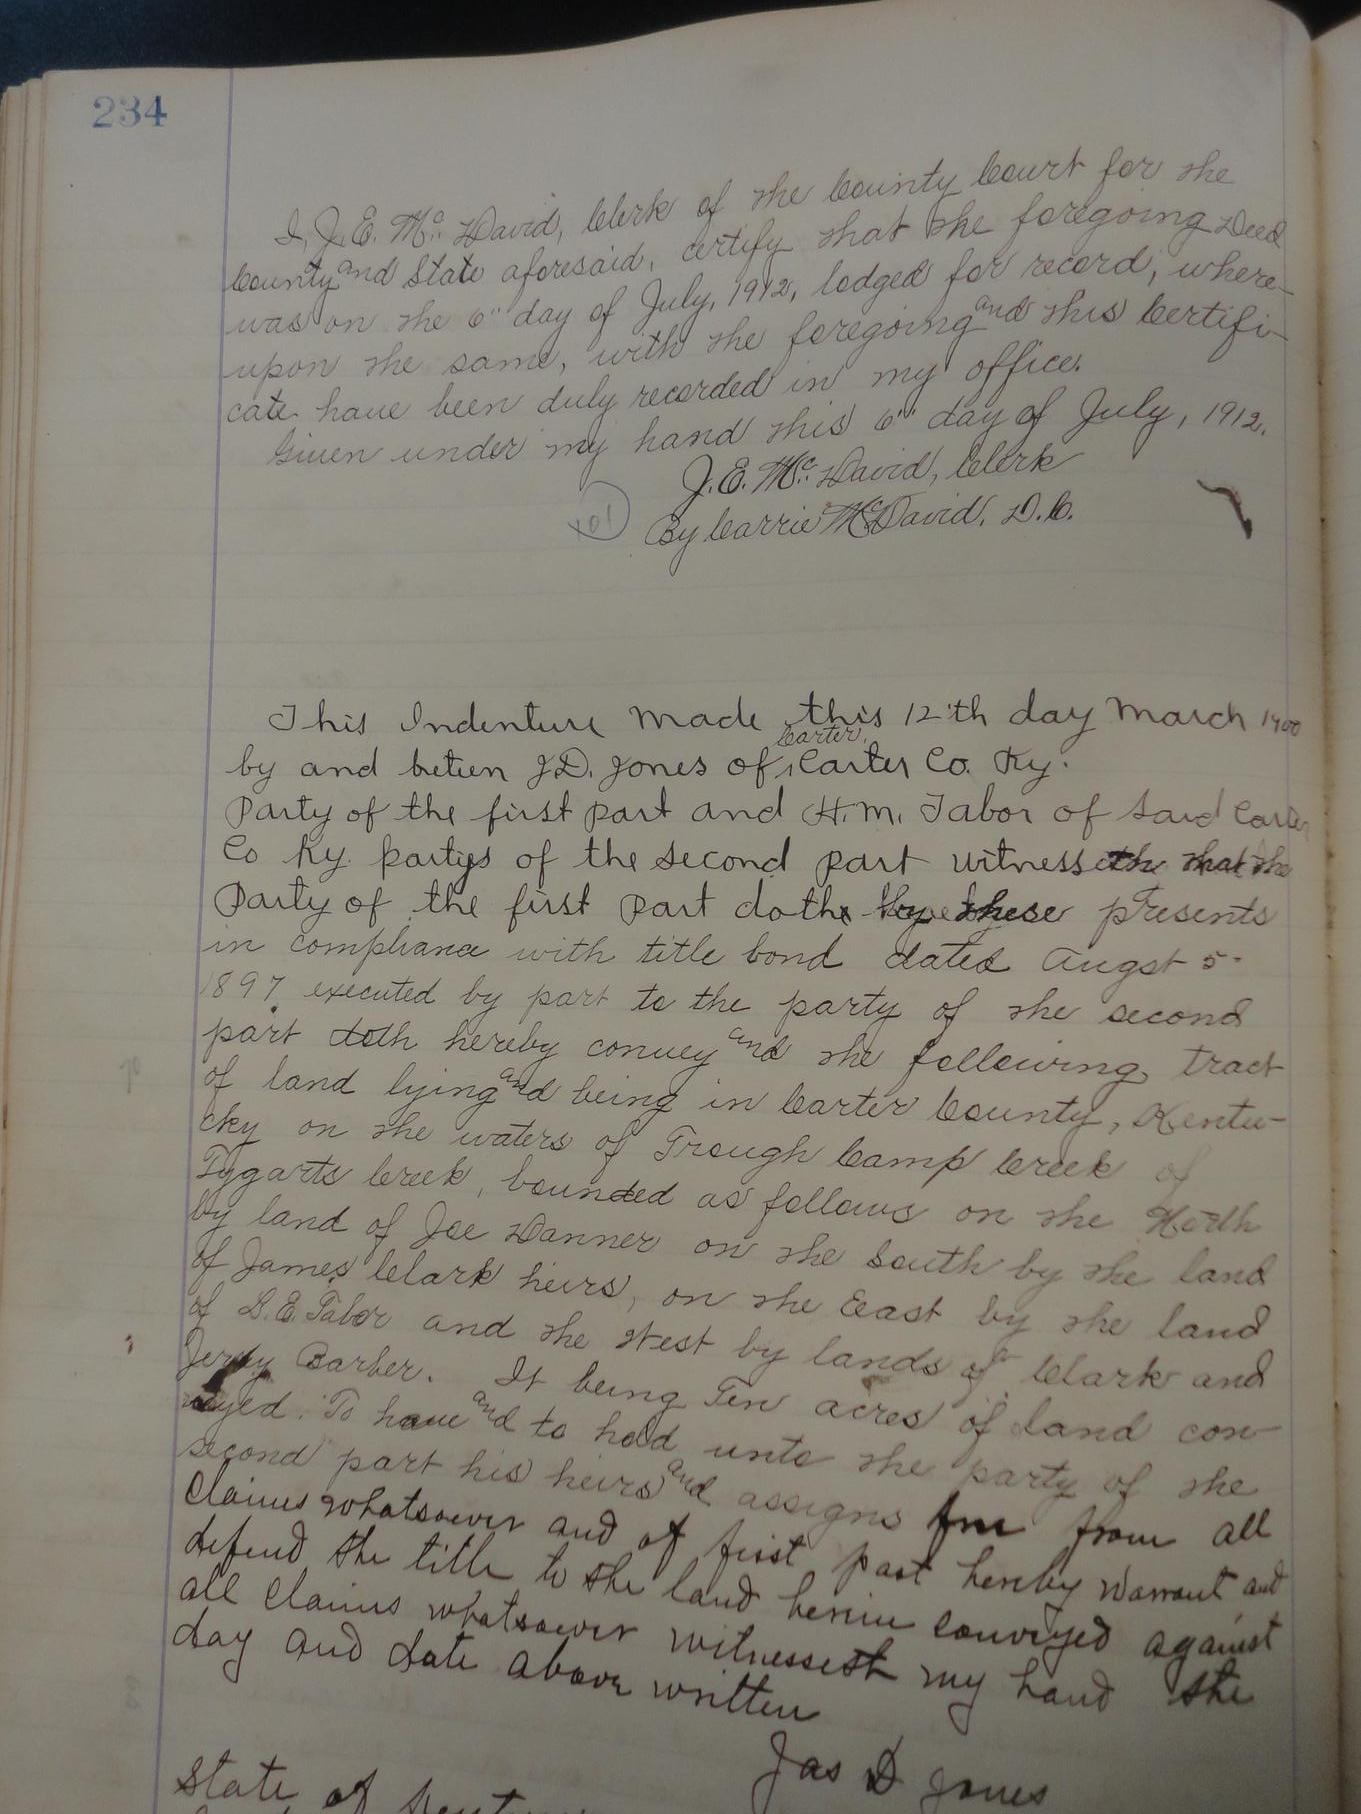 234
I, J. E. Mc. David, Clerk of the County Court for the
County and State aforesaid, certify that the foregoing Deed
was on the 6" day of July, 1912, lodged for record, where-
upon the same, with the foregoing and this Certifi-
cate have been duly recorded in my office.
Given under my hand this 6" day of July, 1912.
J. E. Mc. David, Clerk
By Carrie McDavid, D. C.
This Indenture Made this 12'th day March 1900
Carter,
by and betien J. D. Jones of Carter Co. Ky.
Party of the first part and H. M. Tabor of Said Carter
Co Ky. partys of the second part witnesseth that the
Party of the first part doth by these presents
in compliance with title bond dated Augst 5-
1897 executed by part to the party of the second
part doth hereby convey and the following tract
of land lying and being in Carter County, Kentu-
cky on the waters of Trough Camp Creek of
Tygarts Creek, bounded as follows on the North
by land of Joe Danner on the South by the land
of James Clark heirs, on the East by the land
of Tabor and the West by lands of Clark and
Jerry Barber. It being Ten acres of land con-
veyed. To have and to hold unto the party of the
second part his heirs and assigns from all
claims whatsoever and of first part hereby warrant and
defend the title to the land herein conveyed against
all claims whatsoever witnesseth my hand the
day and date above written
Jas D Jones
State of